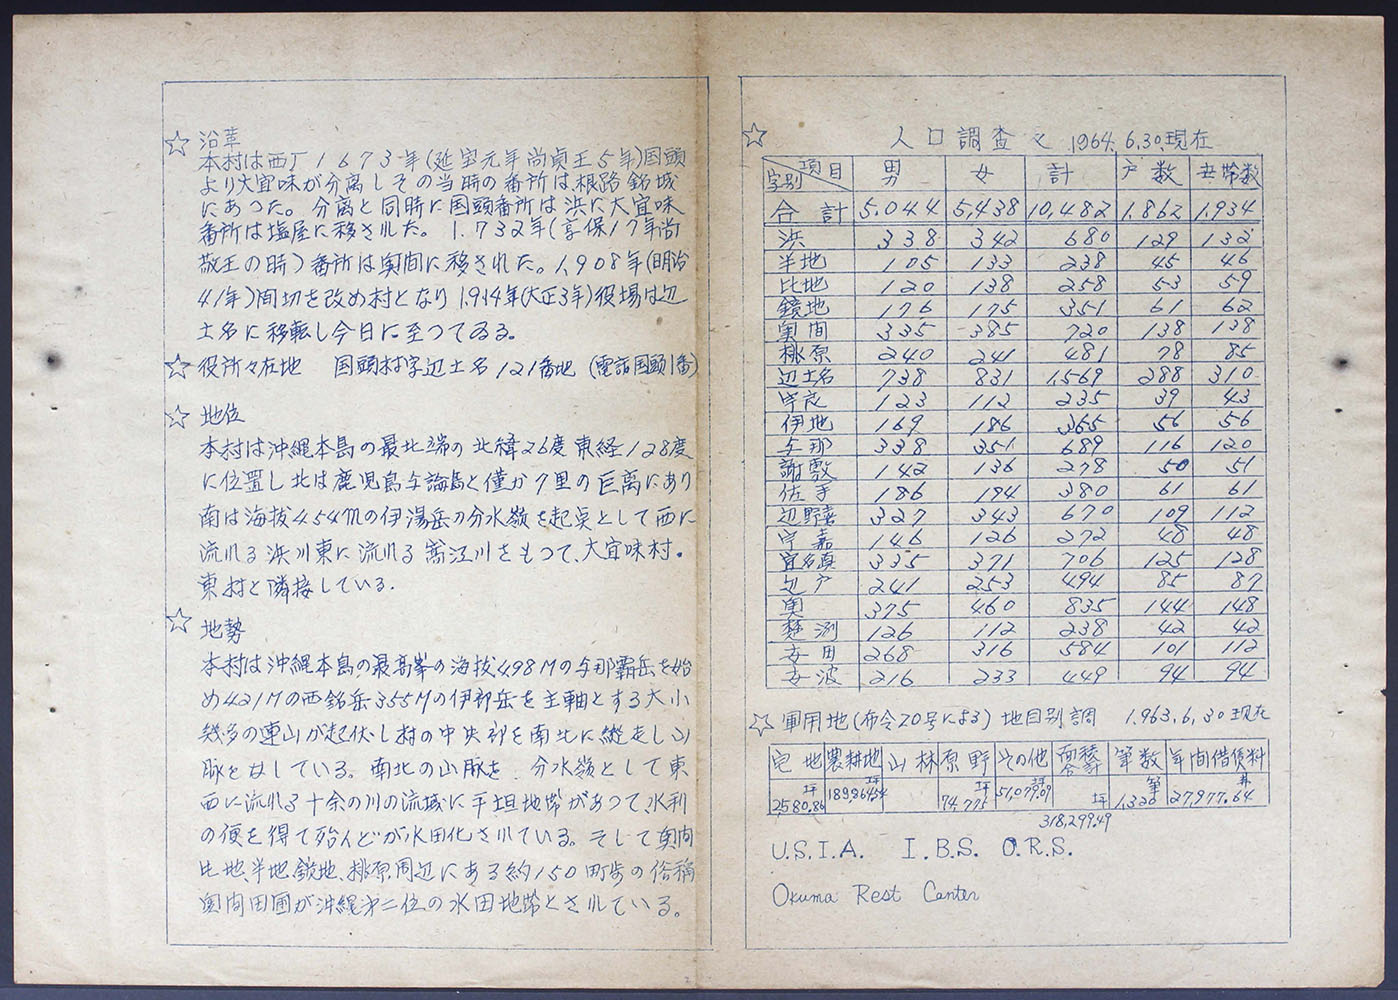 ☆ 沿革
本村は西丁1673年(延宝元年尚貞王5年)国頭
より大宜味が分离しその当時の番所は、根路銘城
にあつた。分离と同時に国頭番所は浜に大宜味
番所は塩屋に移された。1.732年(享保17年尚
敬王の時)番所は奥间に移された。1,908年(明治
41年)间切を改め村となり1,914年(大正3年)役場は辺
土名に移転し今日に至つてゐる。
☆ 役所々在地 国頭村字辺土名121番地 (電話国頭1番)
☆ 地位
本村は沖縄本島の最北端の北緯26度東経128度
に位置し北は鹿児島与論島と僅か7里の巨离にあり
南は海抜454Mの伊湯岳の分水嶺を起点として西に
流れる浜川東に流れる 江川をもつて、大宜味村.
東村と隣接している.
☆ 地勢
本村は沖縄本島の最高峯の海抜498Mの与那覇岳を始
め421Mの西銘岳355Mの伊部岳を主軸とする大小
幾多の連山が起伏し村の中央部を南北に縦走し山
脈をなしている。南北の山脈を 分水嶺として東
西に流れる十余の川の流域に平坦地帯があつて、水利
の便を得て殆んどが水田化されている。そして奥间
比地、半地、鏡地、桃原周辺にある約150町歩の俗稱
奥间田圃が沖縄第二位の水田地帯とされている。
☆ 人口調査 1964.6.30.現在
項目 字別 男 女 計 戸数 世帯数
合計 5,044 5,438 10,482 1,862 1,934
浜 338 342 680 129 132
半地 105 133 238 45 46
比地 120 138 258 53 59
鏡地 176 175 351 61 62
奥间 335 385 720 138 138
桃原 240 241 481 78 85
辺土名 738 831 1,569 288 310
宇良 123 112 235 39 43
伊地 169 186 365 56 56
与那 338 351 689 116 120
謝敷 142 136 278 50 51
佐手 186 194 380 61 61
辺野喜 327 343 670 109 112
宇嘉 146 126 272 48 48
宜名真 335 371 706 125 128
辺戸 241 253 494 85 87
奥 375 460 835 144 148
楚洲 126 112 238 42 42
安田 268 316 584 101 112
安波 216 233 449 94 94
☆ 軍用地(布令20号による) 地目別調 1.963.6.30現在
宅地 農耕地 山林 原野 その他 面積合計 筆数 年间借賃料
坪 2,580.86 坪 189,864.54 坪 74,775 坪 51,079.09 坪 筆 1,320 27,977.64
318,299.49
U.S.I.A. I.B.S. O.R.S.
Okuma Rest Center